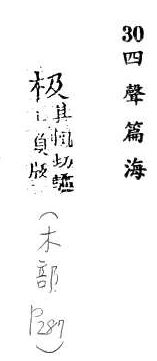 30四聲篇海
极其輒切驢上負版
(木部P287)